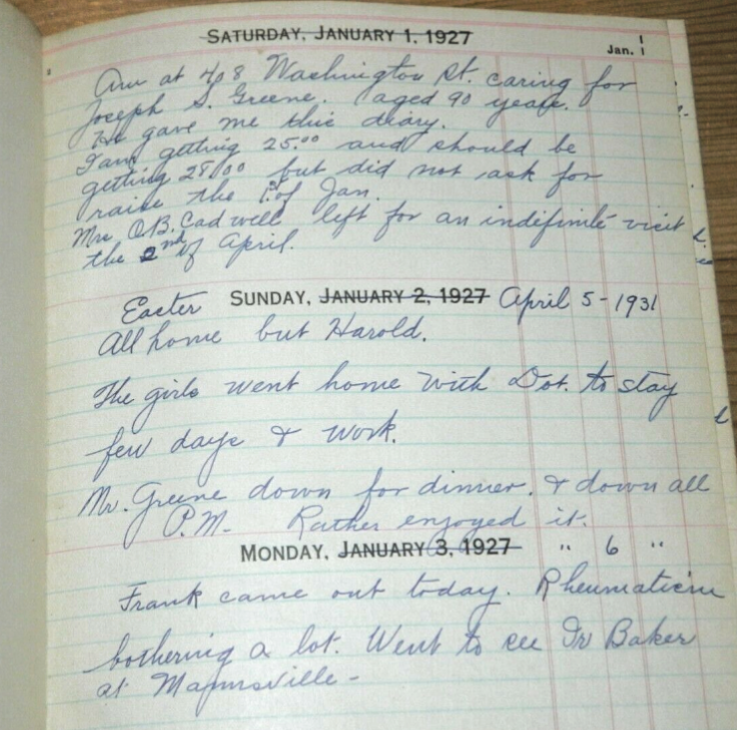 SATURDAY, JANUARY 1, 1927
Jan. 1
1
Am at 408 Washington St. caring for
Joseph S. Greene. (aged 90 years.
He gave me this diary.
I am getting 25.00 and should be
getting 28.00 but did not ask for
raise the 1st of Jan.
Mrs O.B. Cadwell left for an indefinite visit
the 2nd of April.
Easter SUNDAY, JANUARY 2, 1927 April 5-1931
All home but Harold.
The girls went home with Dot. to stay
few days & work.
Mr. Greene down for dinner. & down all
P.M. Rather enjoyed it.
MONDAY, JANUARY 3, 1927 " 6 "
Frank came out today. Rheumatism
bothering a lot. Went to see Dr Baker
at